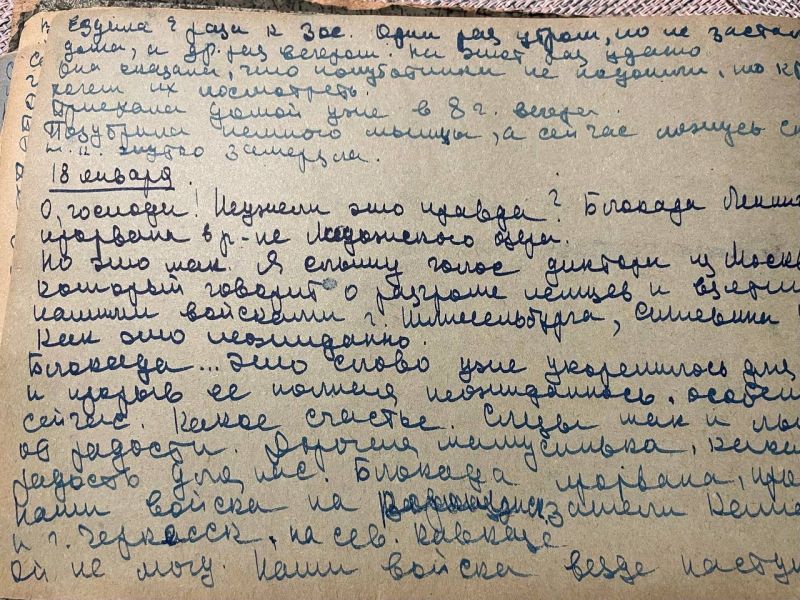 Ездила 2 раза к Зое. Один раз утром, но не застала
дома, а др. раз вечером. На этот раз удачно
Она сказала, что полуботинки не подошли, но
хочет их посмотреть.
Приехала домой уже в 8 г. вечера.
Позубрила немного мышцы, а сейчас ложусь
т.к. жутко замерзла.
18 января.
О, господи! Неужели это правда? Блокада
прорвана в р-не Ладожского озера.
Но это так. Я слышу голос диктора из
который говорит о разгроме немцев и взятии
нашими войсками г. Шлиссельбурга, Синявина
Как это неожиданно.
Блокада... Это слово уже укоренилось для
и прорыв ее полная неожиданность, особенно
сейчас. Какое счастье. Слезы так и
от радости. Дорогая мамусинька, какая
радость для нас. Блокада прорвана,
наши войска на заняли
и г. Черкесск, на сев. Кавказе
Ой не могу. Наши войска везде